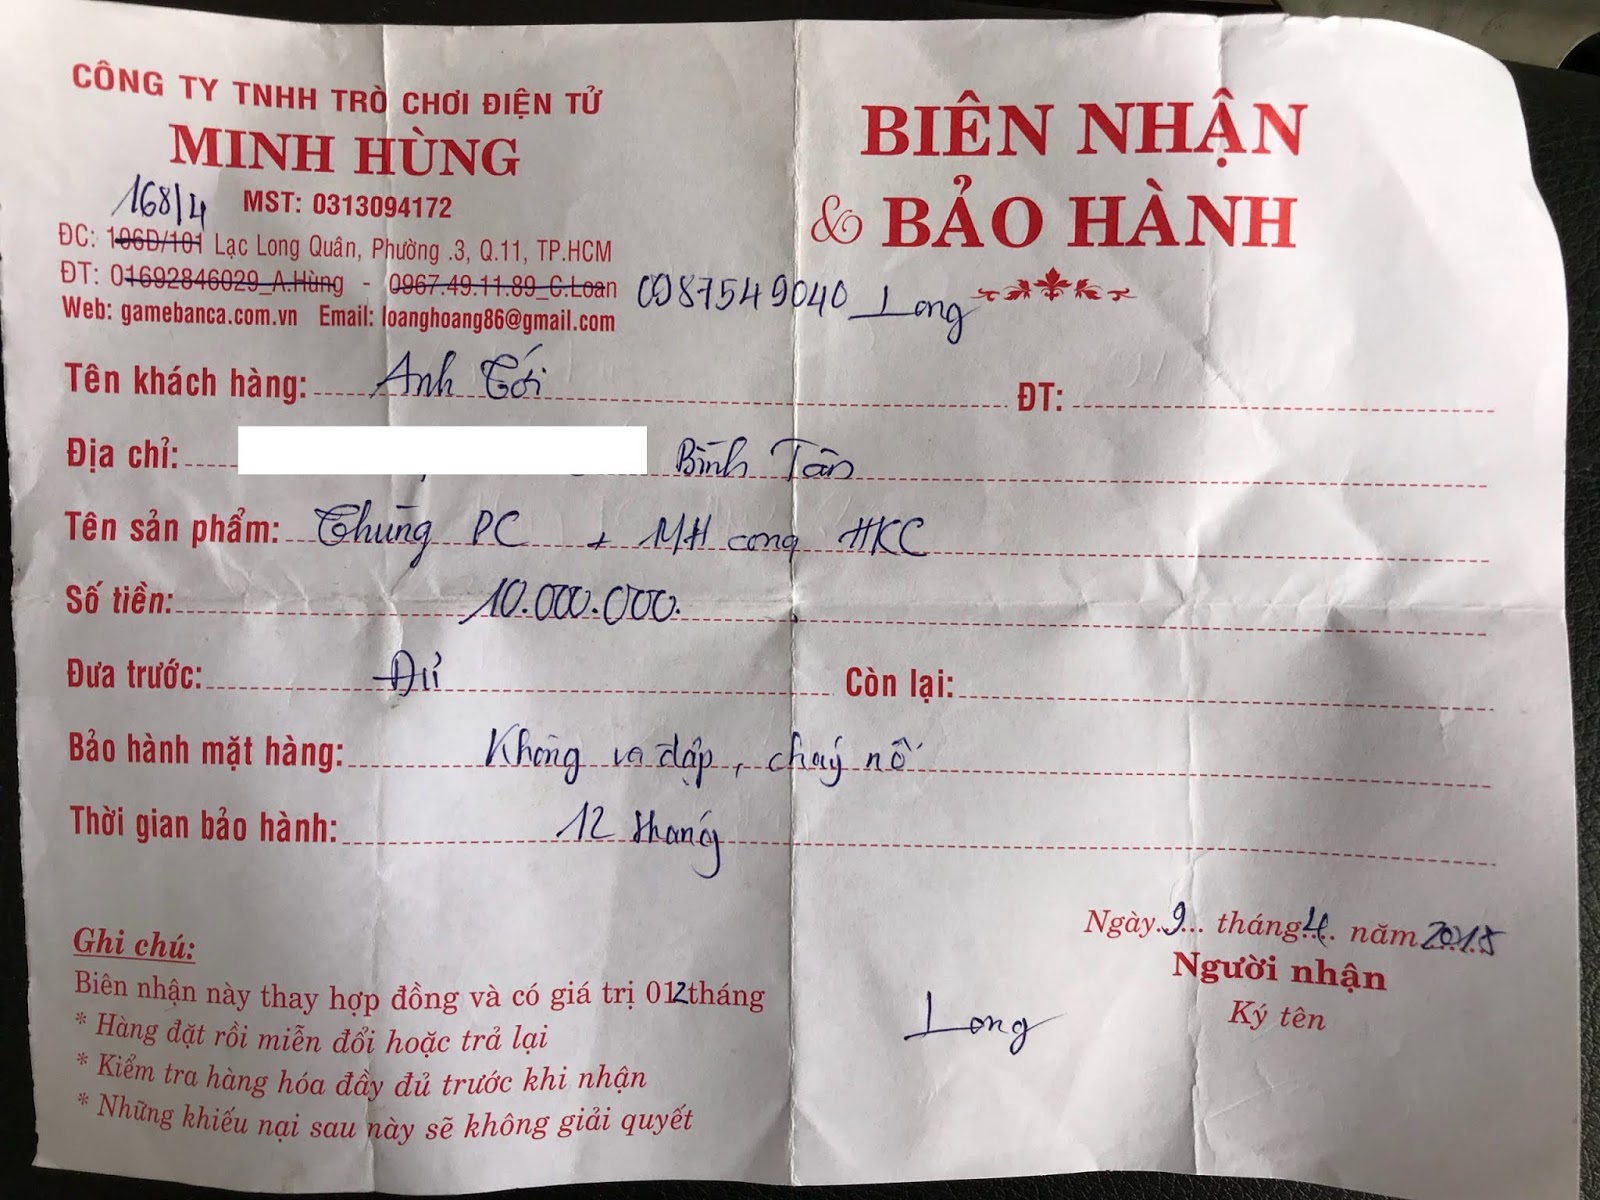 CÔNG TY TNHH TRÒ CHƠI ĐIỆN TỬ
MINH HÙNG
168/4 MST: 0313094172
ĐC: 106D/101 Lạc Long Quân, Phường .3, Q.11, TP.HCM
ĐT: 01692846029_A.Hùng - 0967.49.11.89_C.Loan 0987549040 Long
Web: gamebanca.com.vn Email: loanghoang86@gmail.com
BIÊN NHẬN
& BẢO HÀNH
Tên khách hàng: Anh Tới ĐT:
Địa chỉ: Bình Tân
Tên sản phẩm: Thùng PC + MH cong HKC
Số tiền: 10.000.000.
Đưa trước: Đủ Còn lại:
Bảo hành mặt hàng: Không va đập, cháy nổ
Thời gian bảo hành: 12 tháng
Ngày 9 tháng 4 năm 2018
Người nhận
Ký tên
Long
Ghi chú:
Biên nhận này thay hợp đồng và có giá trị 012 tháng
* Hàng đặt rồi miễn đổi hoặc trả lại
* Kiểm tra hàng hóa đầy đủ trước khi nhận
* Những khiếu nại sau này sẽ không giải quyết